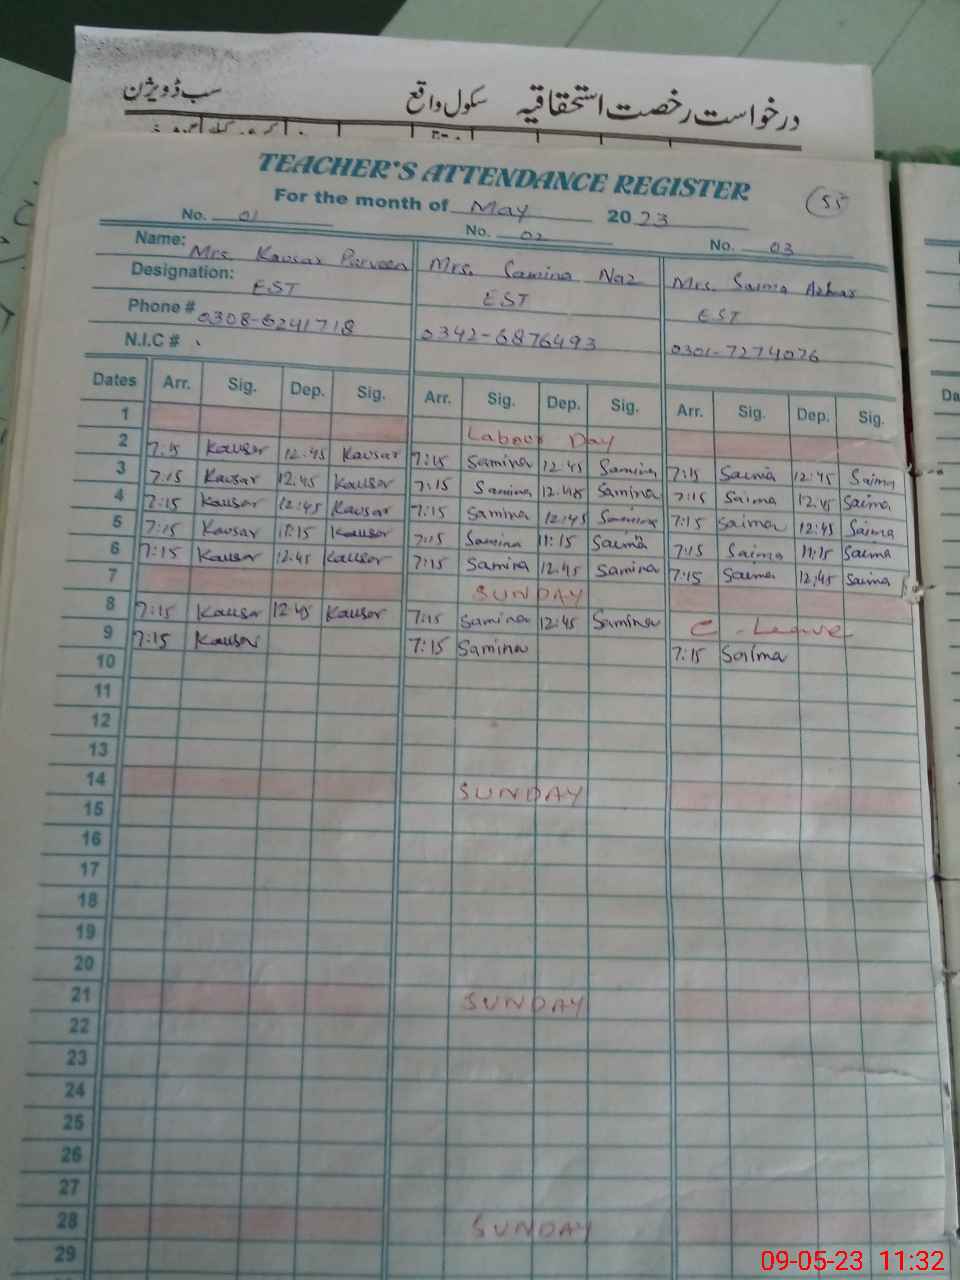 درخواست رخصت استحقاقیہ سکول واقع سب ڈویژن
TEACHER'S ATTENDANCE REGISTER
55
For the month of May 2023
No. 01 No. 02 No. 03
Name: Mrs. Kausar Parveen Mrs. Samina Naz Mrs. Saima Azhar
Designation: EST EST EST
Phone # 0308-6241718 0342-6876493 0301-7274076
N.I.C #
Dates Arr. Sig. Dep. Sig. Arr. Sig. Dep. Sig. Arr. Sig. Dep. Sig.
1 Labour Day
2 7:15 Kausar 12:45 Kausar 7:15 Samina 12:45 Samina 7:15 Saima 12:45 Saima
3 7:15 Kausar 12:45 Kausar 7:15 Samina 12:45 Samina 7:15 Saima 12:45 Saima
4 7:15 Kausar 12:45 Kausar 7:15 Samina 12:45 Samina 7:15 Saima 12:45 Saima
5 7:15 Kausar 11:15 Kausar 7:15 Samina 11:15 Saima 7:15 Saima 11:15 Saima
6 7:15 Kausar 12:45 Kausar 7:15 Samina 12:45 Samina 7:15 Saima 12:45 Saima
7 SUNDAY
8 7:15 Kausar 12:45 Kausar 7:15 Samina 12:45 Samina C-Leave
9 7:15 Kausar 7:15 Samina 7:15 Saima
10
11
12
13
14 SUNDAY
15
16
17
18
19
20
21 SUNDAY
22
23
24
25
26
27
28 SUNDAY
29
Da
09-05-23 11:32